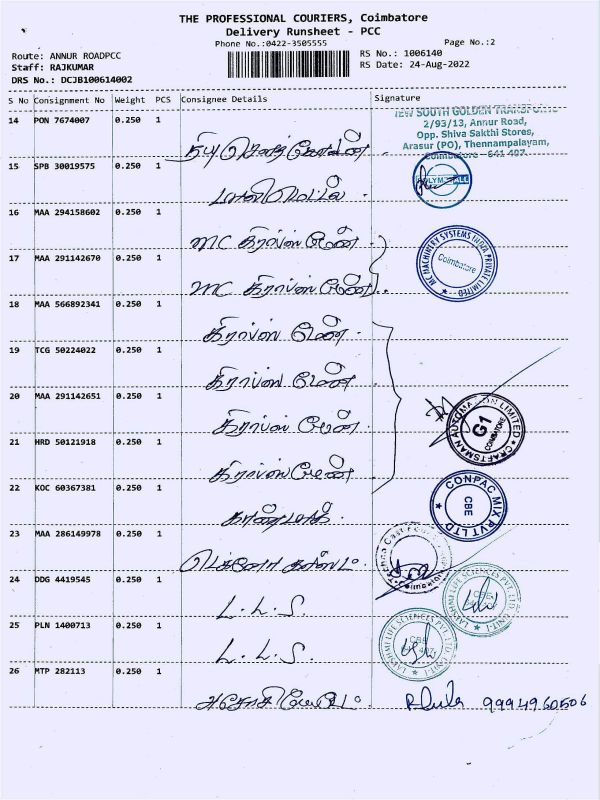 THE PROFESSIONAL COURIERS, Coimbatore
Delivery Runsheet - PCC
Phone No.:0422-3505555
Page No.:2
Route: ANNUR ROADPCC
RS No.: 1006140
Staff: RAJKUMAR
RS Date: 24-Aug-2022
DRS No.: DCJB100614002
S No Consignment No Weight PCS Consignee Details Signature
14 PON 7674007 0.250 1
NEW SOUTH GOLDEN TRANSPORTS
2/93/13, Annur Road,
Opp. Shiva Sakthi Stores,
Arasur (PO), Thennampalayam,
Coimbatore - 641 407.
15 SPB 30019575 0.250 1
16 MAA 294158602 0.250 1
MC கிராப்ஸ் மேன்
MC MACHINERY SYSTEMS INDIA PRIVATE LIMITED
Coimbatore
17 MAA 291142670 0.250 1
MC கிராப்ஸ் மேன்
18 MAA 566892341 0.250 1
கிராப்ஸ் மேன்
19 TCG 50224022 0.250 1
கிராப்ஸ் மேன்
20 MAA 291142651 0.250 1
கிராப்ஸ் மேன்
CRAFTSMAN AUTOMATION LIMITED
G1
COIMBATORE
21 HRD 50121918 0.250 1
கிராப்ஸ் மேன்
22 KOC 60367381 0.250 1
CONPAC MIX PVT LTD
CBE
23 MAA 286149978 0.250 1
24 DDG 4419545 0.250 1
L.L.S.
LAKSHMI LIFE SCIENCES PVT. LTD. UNIT-I
25 PLN 1400713 0.250 1
L.L.S.
LAKSHMI LIFE SCIENCES PVT. LTD. UNIT-I
26 MTP 282113 0.250 1
9994960506